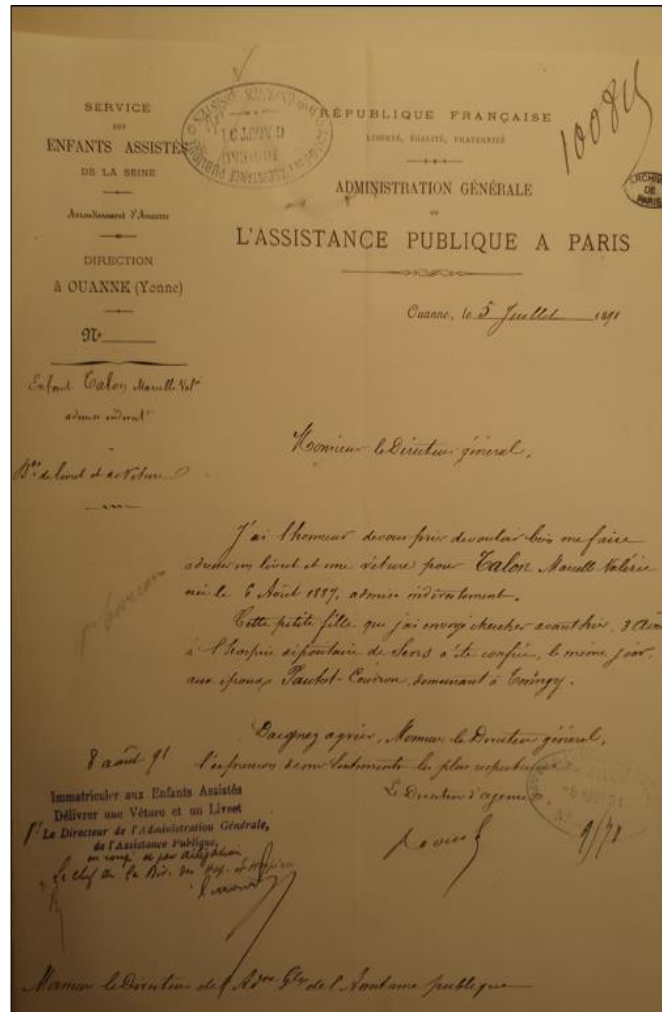 SERVICE
DES
ENFANTS ASSISTÉS
DE LA SEINE
Arrondissement d'Auxerre
DIRECTION
à OUANNE (Yonne)
No
Enfant Talon Marcelle Valie
admise indirectt
Don de livret et de Vêture
RÉPUBLIQUE FRANÇAISE
LIBERTÉ, ÉGALITÉ, FRATERNITÉ
ADMINISTRATION GÉNÉRALE
DE
L'ASSISTANCE PUBLIQUE A PARIS
ARCHIVES
DE
PARIS
Ouanne, le 5 Juillet 1891
Monsieur le Directeur général,
J'ai l'honneur de vous prier de vouloir bien me faire
adresser un livret et une vêture pour Talon Marcelle Valérie
née le 6 Août 1887, admise indirectement.
Cette petite fille que j'ai envoyé chercher avant hier, 3 Août
à l'hospice dépositaire de Sens a été confiée, le même jour,
aux époux Pautot-Coudron, demeurant à Taingy.
Daignez agréer, Monsieur le Directeur général,
l'expression de mes sentiments les plus respectueux.
Le Directeur d'agence
8 août 91
Immatriculer aux Enfants Assistés
Délivrer une Vêture et un Livret
Le Directeur de l'Administration Générale,
de l'Assistance Publique,
et par délégation
Le chef de la Div. des
Monsieur le Directeur de l'Adon Gle de l'Assistance publique